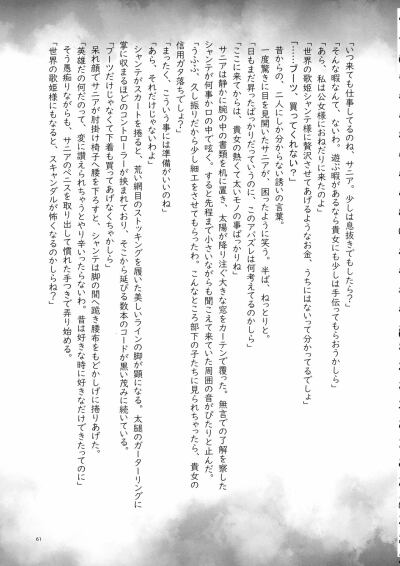 「いつ来ても仕事してるのね、サニア。少しは息抜きでもしたら？」
「そんな暇なんて、ないわ。遊ぶ暇があるなら貴女にも少しは手伝ってもらおうかしら」
「あら、私は公女様におねだりに来たのよ」
「世界の歌姫シャンテ様に贅沢させてあげるようなお金、うちにはないって分かってるでしょ」
「……ブーツ、買ってくれない？」
昔からの、二人にしか分からない誘いの言葉。
一度驚きに目を見開いたサニアが、困ったように笑う。半ば、ねっとりと。
「日もまだ昇ったばかりだっていうのに、このアバズレは何考えてるのかしら」
「ここに来てからは、貴女の熱くて太いモノの事ばっかりね」
サニアは静かに腕の中の書類を机に置き、太陽が降り注ぐ大きな窓をカーテンで覆った。無言での了解を察した
シャンテが何事か口の中で呟く。すると先程まで小さいながらも聞こえて来ていた周囲の音がぴたりと止んだ。
「うふふ、久し振りだから少し細工をさせてもらったわ。こんなところ部下の子たちに見られちゃったら、貴女の
信用ガタ落ちでしょう」
「まったく、こういう事には準備がいいのね」
「あら、それだけじゃないわよ」
シャンテがスカートを捲ると、荒い網目のストッキングを履いた美しいラインの脚が顕になる。太腿のガーターリングに
掌に収まるほどのコントローラーが挟まれており、そこから延びる数本のコードが黒い茂みに続いている。
「ブーツだけじゃなくて下着も買ってあげなくちゃかしら」
呆れ顔でサニアが肘掛け椅子へ腰を下ろすと、シャンテは脚の間へ跪き腰布をもどかしげに捲りあげた。
「英雄だの何だのって、変に讃えられちゃうとやり辛いったらないわ。昔は好きな時に好きなだけできたってのに」
そう愚痴りながらも、サニアのペニスを取り出して慣れた手つきで弄り始める。
「世界の歌姫様にもなると、スキャンダルが怖くなるのかしらね？」
61